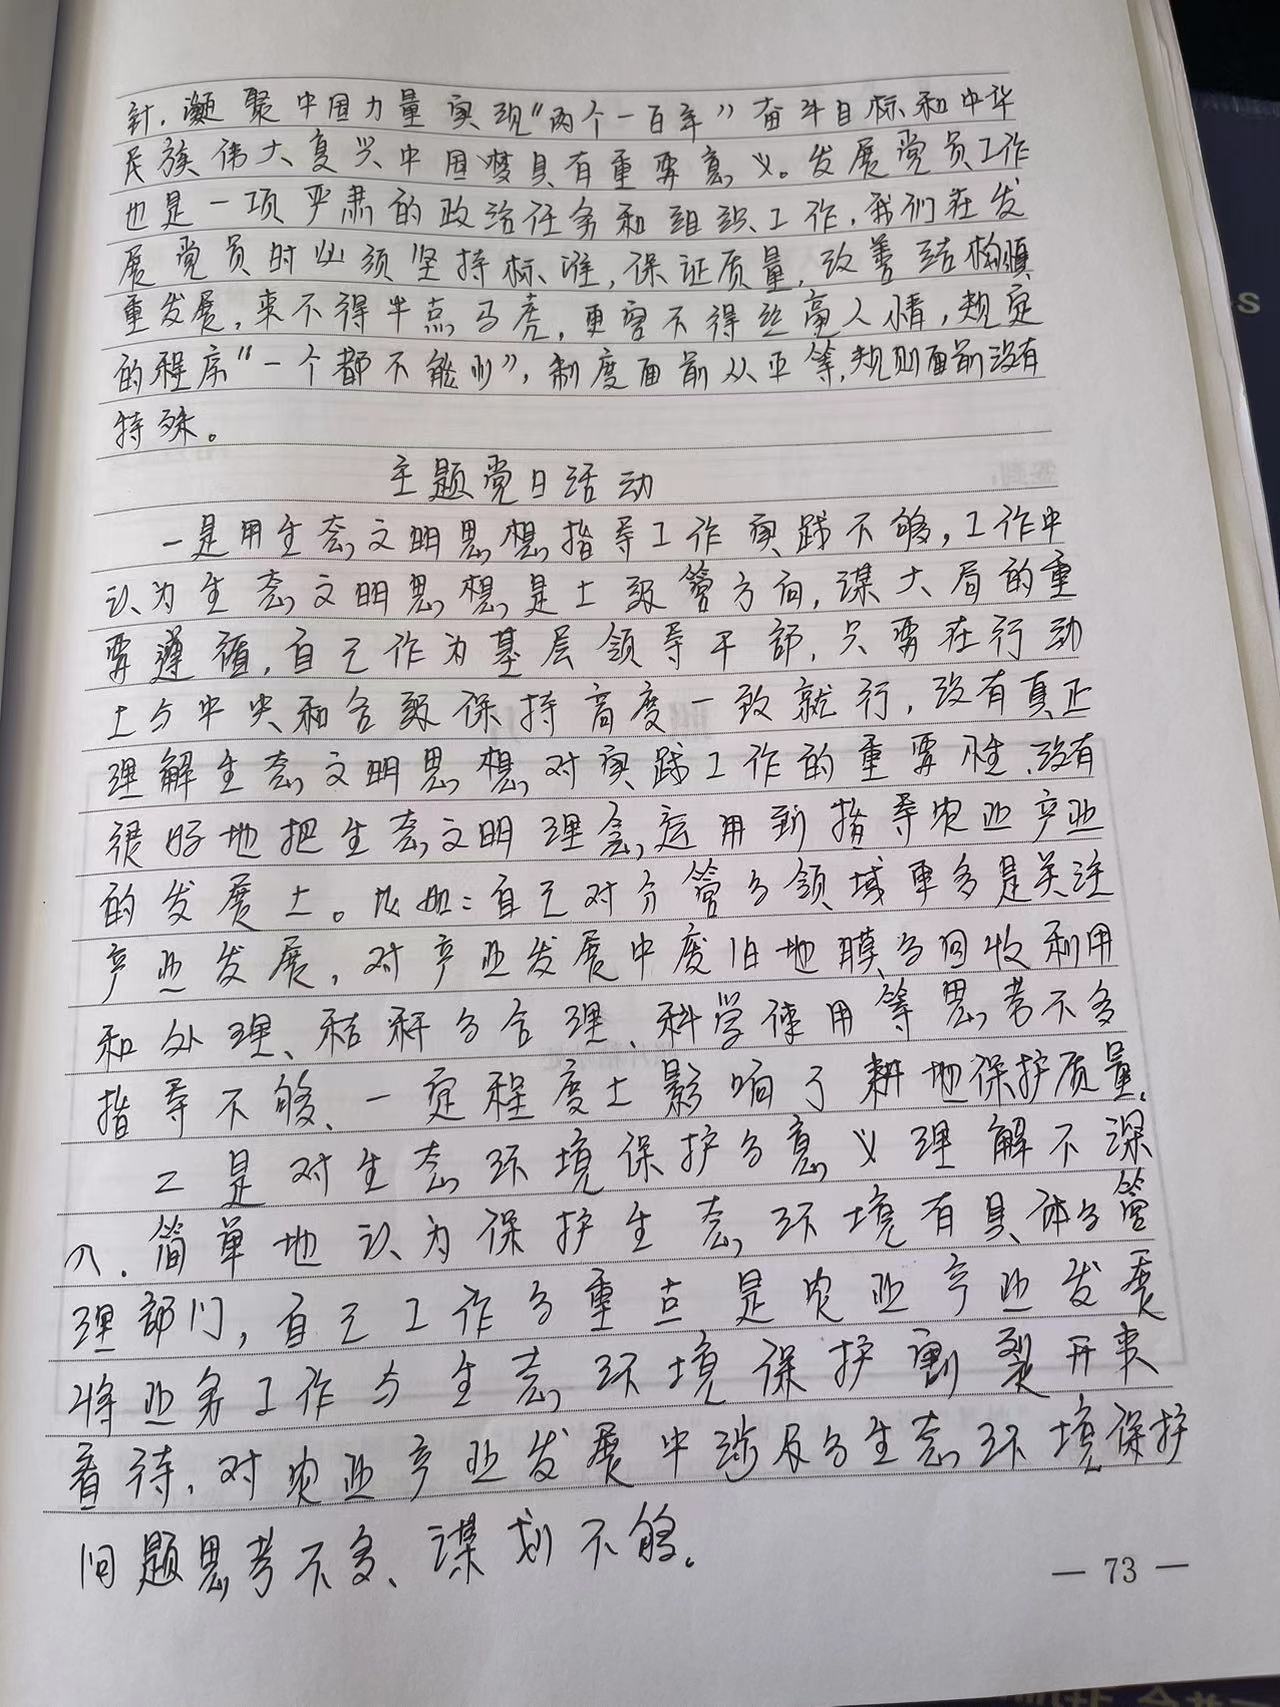 针，凝聚中国力量实现“两个一百年”奋斗目标和中华
民族伟大复兴中国梦具有重要意义。发展党员工作
也是一项严肃的政治任务和组织工作，我们在发
展党员时必须坚持标准，保证质量，改善结构慎
重发展，来不得半点马虎，更容不得丝毫人情，规定
的程序“一个都不能少”，制度面前从平等，规则面前没有
特殊。
主题党日活动
一是用生态文明思想指导工作实践不够，工作中
认为生态文明思想是上级管方向，谋大局的重
要遵循，自己作为基层领导干部，只要在行动
上与中央和各级保持高度一致就行，没有真正
理解生态文明思想对实践工作的重要性、没有
很好地把生态文明理念运用到指导农业产业
的发展上。比如：自己对分管的领域更多是关注
产业发展，对产业发展中废旧地膜的回收利用
和处理、秸秆的合理、科学使用等思考不多
指导不够、一定程度上影响了耕地保护质量。
二是对生态环境保护的意义理解不深
入．简单地认为保护生态环境有具体的管
理部门，自己工作的重点是农业产业发展
将业务工作与生态环境保护割裂开来
看待，对农业产业发展中涉及的生态环境保护
问题思考不多、谋划不够。
— 73 —